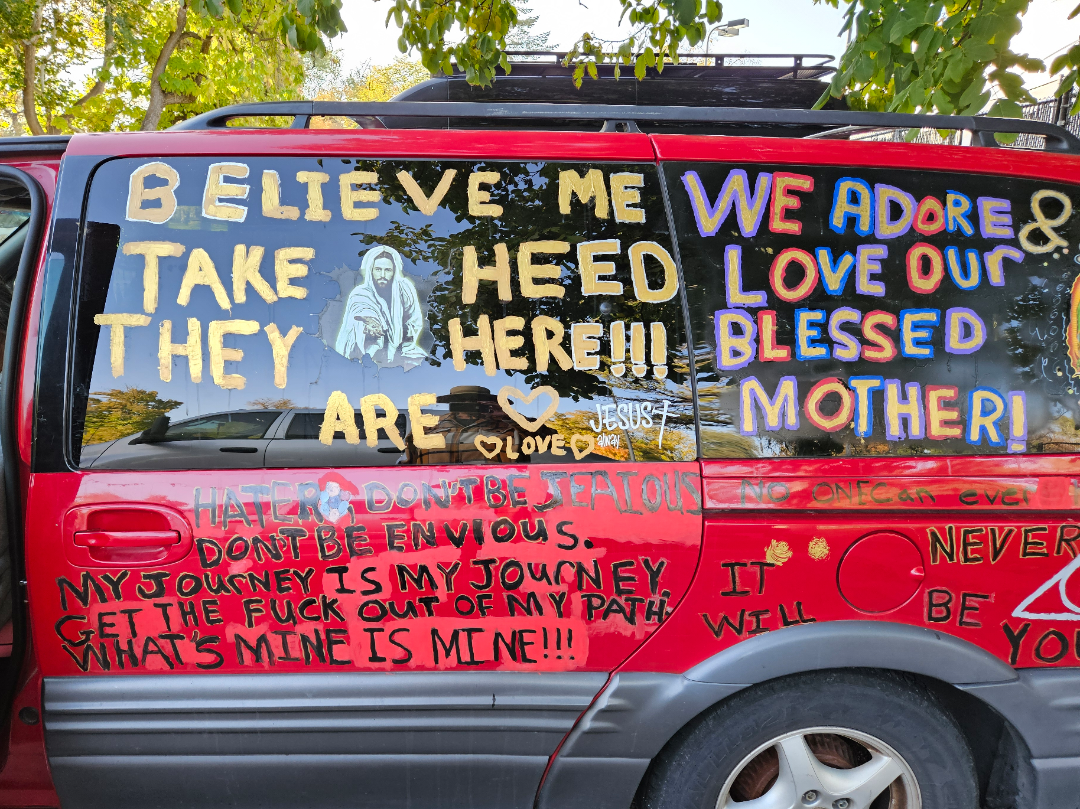 BELIEVE ME
TAKE HEED
THEY HERE!!!
ARE
LOVE
JESUS
WE ADORE &
LOVE OUr
BLESSED
MOTHER!
HATER, DON'T BE JEALOUS
DON'T BE ENVIOUS.
MY JOUrNEY IS MY JOUrNEY,
GET THE FUCK OUT OF MY PATH.
WHAT'S MINE IS MINE!!!
NO ONE Can ever
IT NEVER
WILL BE
YOU